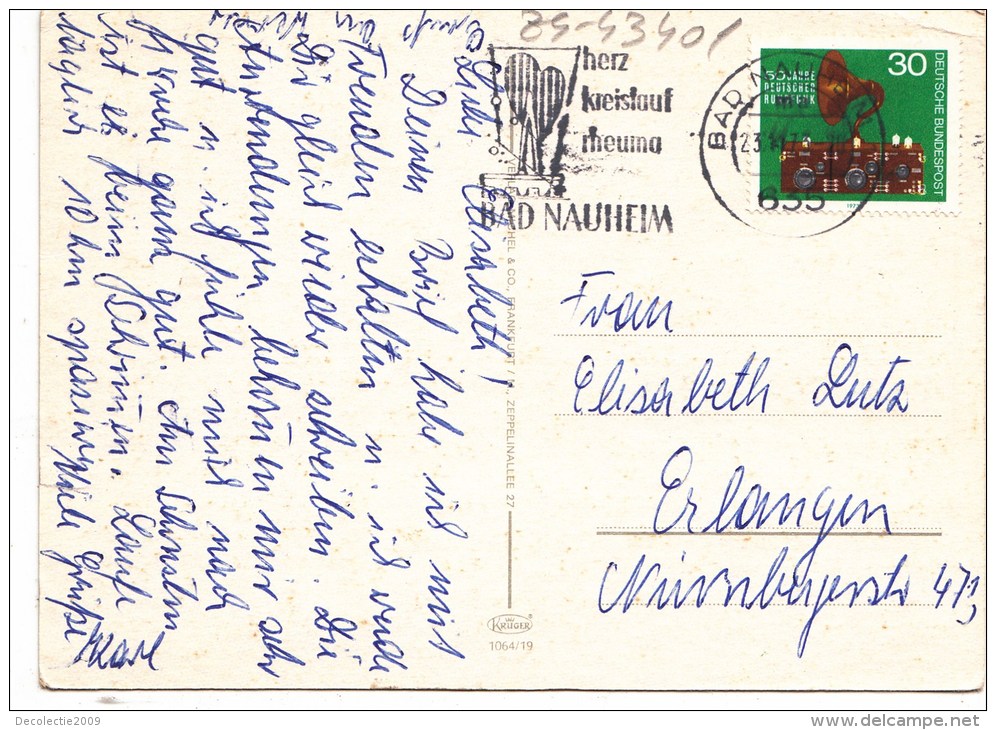 25-43401
herz
kreislauf
rheuma
BAD NAUHEIM
BAD NAUHEIM
635
50 JAHRE
DEUTSCHER
RUNDFUNK
30
DEUTSCHE BUNDESPOST
Liebe Elisabeth!
Deinen Brief habe ich mit
Freuden erhalten u. ich werde
Dir gleich wieder schreiben. Die
Anwendungen bekommen mir sehr
gut u. ich fühle mich nach
ganz gut. Am schönsten
ist es beim Schwimmen. Laufe
täglich 10 km spazieren
Viele Grüße
Karl
Frau
Elisabeth Lutz
Erlangen
Nürnbergerstr 47
& CO., FRANKFURT / M., ZEPPELINALLEE 27
KRÜGER
1064/19
Decolectie2009
www.delcampe.net